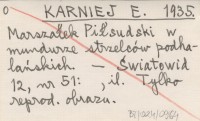 O KARNIEJ E. 1935.
Marszałek Piłsudski w
mundurze strzelców podha-
lańskich. — Światowid
12, nr 51: , il. Tylko
reprod. obrazu.